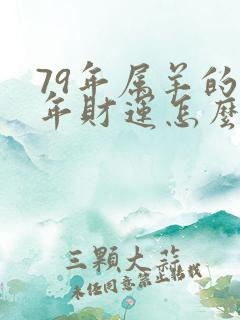 79年属羊的
年财运怎么
三颗大蒜
未经同意禁止转载